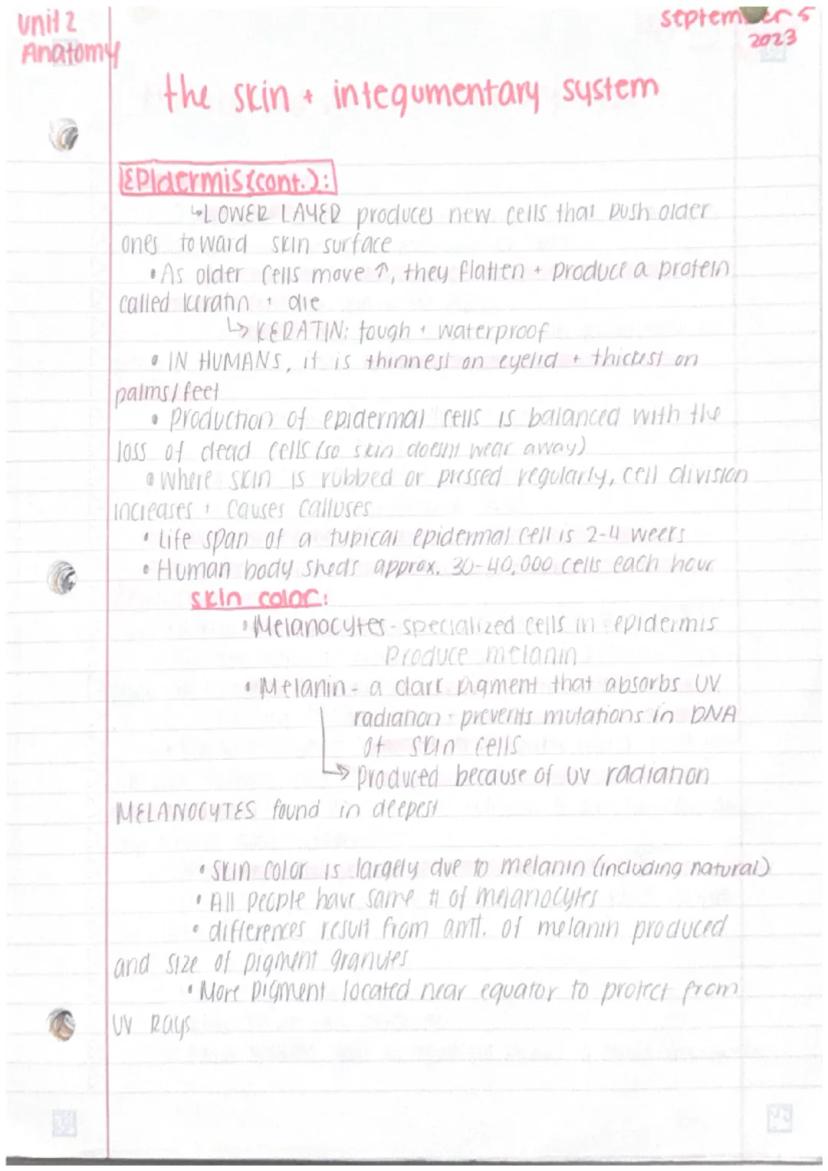 Unit 2
September 5
Anatomy
2023
the skin + integumentary system
Epidermis (cont.):
↳ LOWER LAYER produces new cells that push older
ones toward skin surface
• As older cells move ↑, they flatten + produce a protein
called keratin + die
↳ KERATIN: tough + waterproof
• IN HUMANS, it is thinnest on eyelid + thickest on
palms/feet
• Production of epidermal cells is balanced with the
loss of dead cells (so skin doesnt wear away)
• Where skin is rubbed or pressed regularly, cell division
increases + causes calluses
• Life span of a typical epidermal cell is 2-4 weeks
• Human body sheds approx. 30-40,000 cells each hour
skin color:
• Melanocytes - specialized cells in epidermis
Produce melanin
• Melanin - a dark pigment that absorbs UV
radiation + prevents mutations in DNA
of skin cells
↳ Produced because of UV radiation
MELANOCYTES found in deepest
• Skin color is largely due to melanin (including natural)
• All people have same # of melanocytes
• differences result from amt. of melanin produced
and size of pigment granules
• More pigment located near equator to protect from
UV Rays